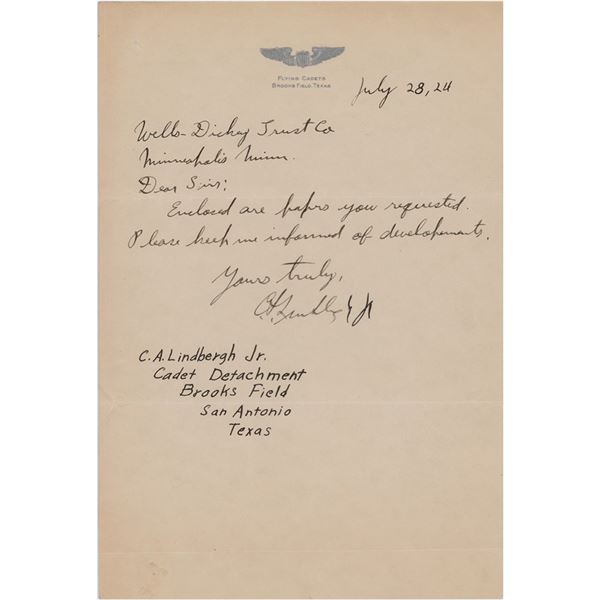 FLYING CADETS
BROOKS FIELD, TEXAS
July 28, 24
Wells-Dickey Trust Co
Minneapolis Minn.
Dear Sirs:
Enclosed are paprs you requested.
Please keep me informed of developements.
Yours truly,
C.A. Lindbergh Jr
C.A. Lindbergh Jr.
Cadet Detachment
Brooks Field
San Antonio
Texas